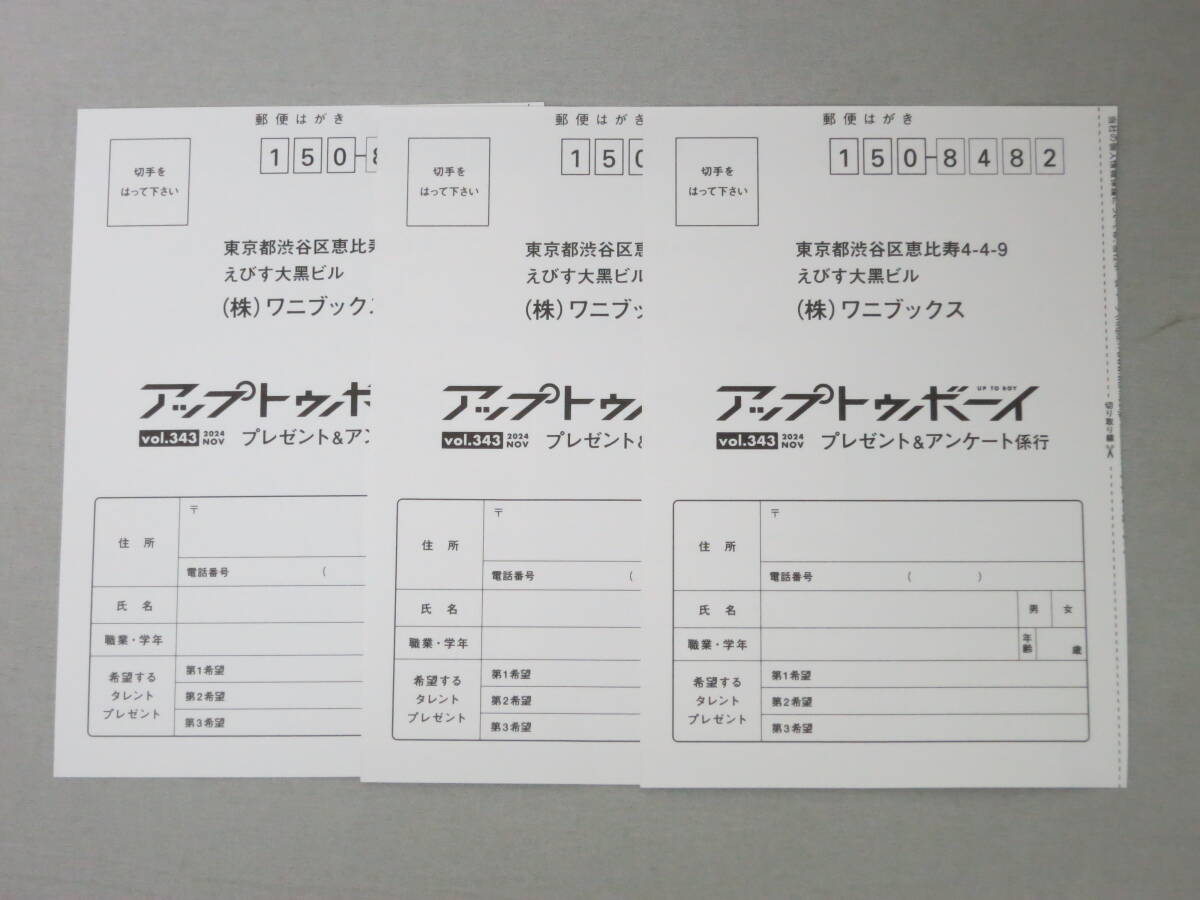 郵便はがき
切手を
はって下さい
150-8
東京都渋谷区恵比寿
えびす大黒ビル
(株)ワニブック
アップトゥボ
vol.343 2024 NOV プレゼント&ア
〒
住所
電話番号 (
氏名
職業・学年
希望する
タレント
プレゼント
第1希望
第2希望
第3希望
郵便はがき
切手を
はって下さい
150
東京都渋谷区恵
えびす大黒ビル
(株)ワニブッ
アップトゥ
vol.343 2024 NOV プレゼント&
〒
住所
電話番号 (
氏名
職業・学年
希望する
タレント
プレゼント
第1希望
第2希望
第3希望
郵便はがき
切手を
はって下さい
150-8482
東京都渋谷区恵比寿4-4-9
えびす大黒ビル
(株)ワニブックス
UP TO BOY
アップトゥボーイ
vol.343 2024 NOV プレゼント&アンケート係行
〒
住所
電話番号 ( )
氏名 男 女
職業・学年 年齢 歳
希望する
タレント
プレゼント
第1希望
第2希望
第3希望
切り取り線